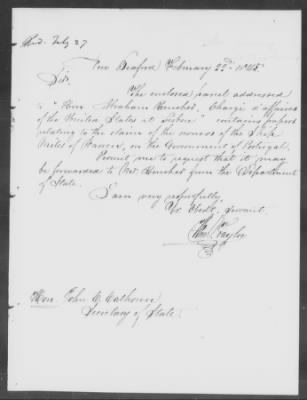 Recd. Feby 27
New Bedford February 22nd 1845.
Sir.
The enclosed parcel addressed
to "Hon. Abraham Rencher. Chargé d'affaires
of the United States at Lisbon" contains papers
relating to the claim of the owners of the Ship
Miles of Warren, on the Government of Portugal.
Permit me to request that it may
be forwarded to Mr. Rencher from the Department
of State.
I am very respectfully.
Yr. Obedt. Servant.
Taylor
Hon. John C. Calhoun
Secretary of State.